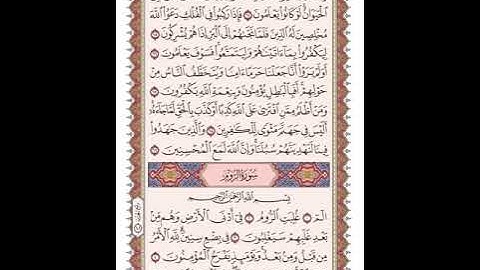 ٱلۡحَيَوَانُۚ لَوۡ كَانُواْ يَعۡلَمُونَ ۝ فَإِذَا رَكِبُواْ فِي ٱلۡفُلۡكِ دَعَوُاْ ٱللَّهَ
مُخۡلِصِينَ لَهُ ٱلدِّينَ فَلَمَّا نَجَّىٰهُمۡ إِلَى ٱلۡبَرِّ إِذَا هُمۡ يُشۡرِكُونَ ۝
لِيَكۡفُرُواْ بِمَآ ءَاتَيۡنَٰهُمۡ وَلِيَتَمَتَّعُواْۚ فَسَوۡفَ يَعۡلَمُونَ ۝
أَوَلَمۡ يَرَوۡاْ أَنَّا جَعَلۡنَا حَرَمًا ءَامِنٗا وَيُتَخَطَّفُ ٱلنَّاسُ مِنۡ
حَوۡلِهِمۡۚ أَفَبِٱلۡبَٰطِلِ يُؤۡمِنُونَ وَبِنِعۡمَةِ ٱللَّهِ يَكۡفُرُونَ ۝
وَمَنۡ أَظۡلَمُ مِمَّنِ ٱفۡتَرَىٰ عَلَى ٱللَّهِ كَذِبًا أَوۡ كَذَّبَ بِٱلۡحَقِّ لَمَّا جَآءَهُۥٓۚ
أَلَيۡسَ فِي جَهَنَّمَ مَثۡوٗى لِّلۡكَٰفِرِينَ ۝ وَٱلَّذِينَ جَٰهَدُواْ
فِينَا لَنَهۡدِيَنَّهُمۡ سُبُلَنَاۚ وَإِنَّ ٱللَّهَ لَمَعَ ٱلۡمُحۡسِنِينَ ۝
سُورَةُ الرُّومِ
بِسۡمِ ٱللَّهِ ٱلرَّحۡمَٰنِ ٱلرَّحِيمِ
الٓمٓ ۝ غُلِبَتِ ٱلرُّومُ ۝ فِيٓ أَدۡنَى ٱلۡأَرۡضِ وَهُم مِّنۢ
بَعۡدِ غَلَبِهِمۡ سَيَغۡلِبُونَ ۝ فِي بِضۡعِ سِنِينَۗ لِلَّهِ ٱلۡأَمۡرُ
مِن قَبۡلُ وَمِنۢ بَعۡدُۚ وَيَوۡمَئِذٖ يَفۡرَحُ ٱلۡمُؤۡمِنُونَ ۝